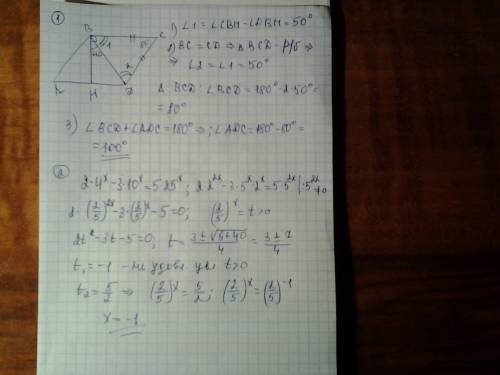 ①
B C
1
40
2
A H D
1) ∠1 = ∠CBH - ∠DBH = 50°
2) BC = CD ⇒ ΔBCD - р/б ⇒
⇒ ∠2 = ∠1 = 50°
Δ BCD: ∠BCD = 180° - 2·50° =
= 80°
3) ∠BCD + ∠ADC = 180° ⇒; ∠ADC = 180° - 80° =
= 100°
②
2·4^x - 3·10^x = 5·25^x; 2·2^{2x} - 3·5^x·2^x = 5·5^{2x} |: 5^{2x} ≠ 0
2·(2/5)^{2x} - 3·(2/5)^x - 5 = 0; (2/5)^x = t > 0
2t² - 3t - 5 = 0, t = (3 ± √(9+40))/4 = (3 ± 7)/4
t₁ = -1 - не удовл усл t > 0
t₂ = 5/2 ⇒ (2/5)^x = 5/2; (2/5)^x = (2/5)^{-1}
x = -1